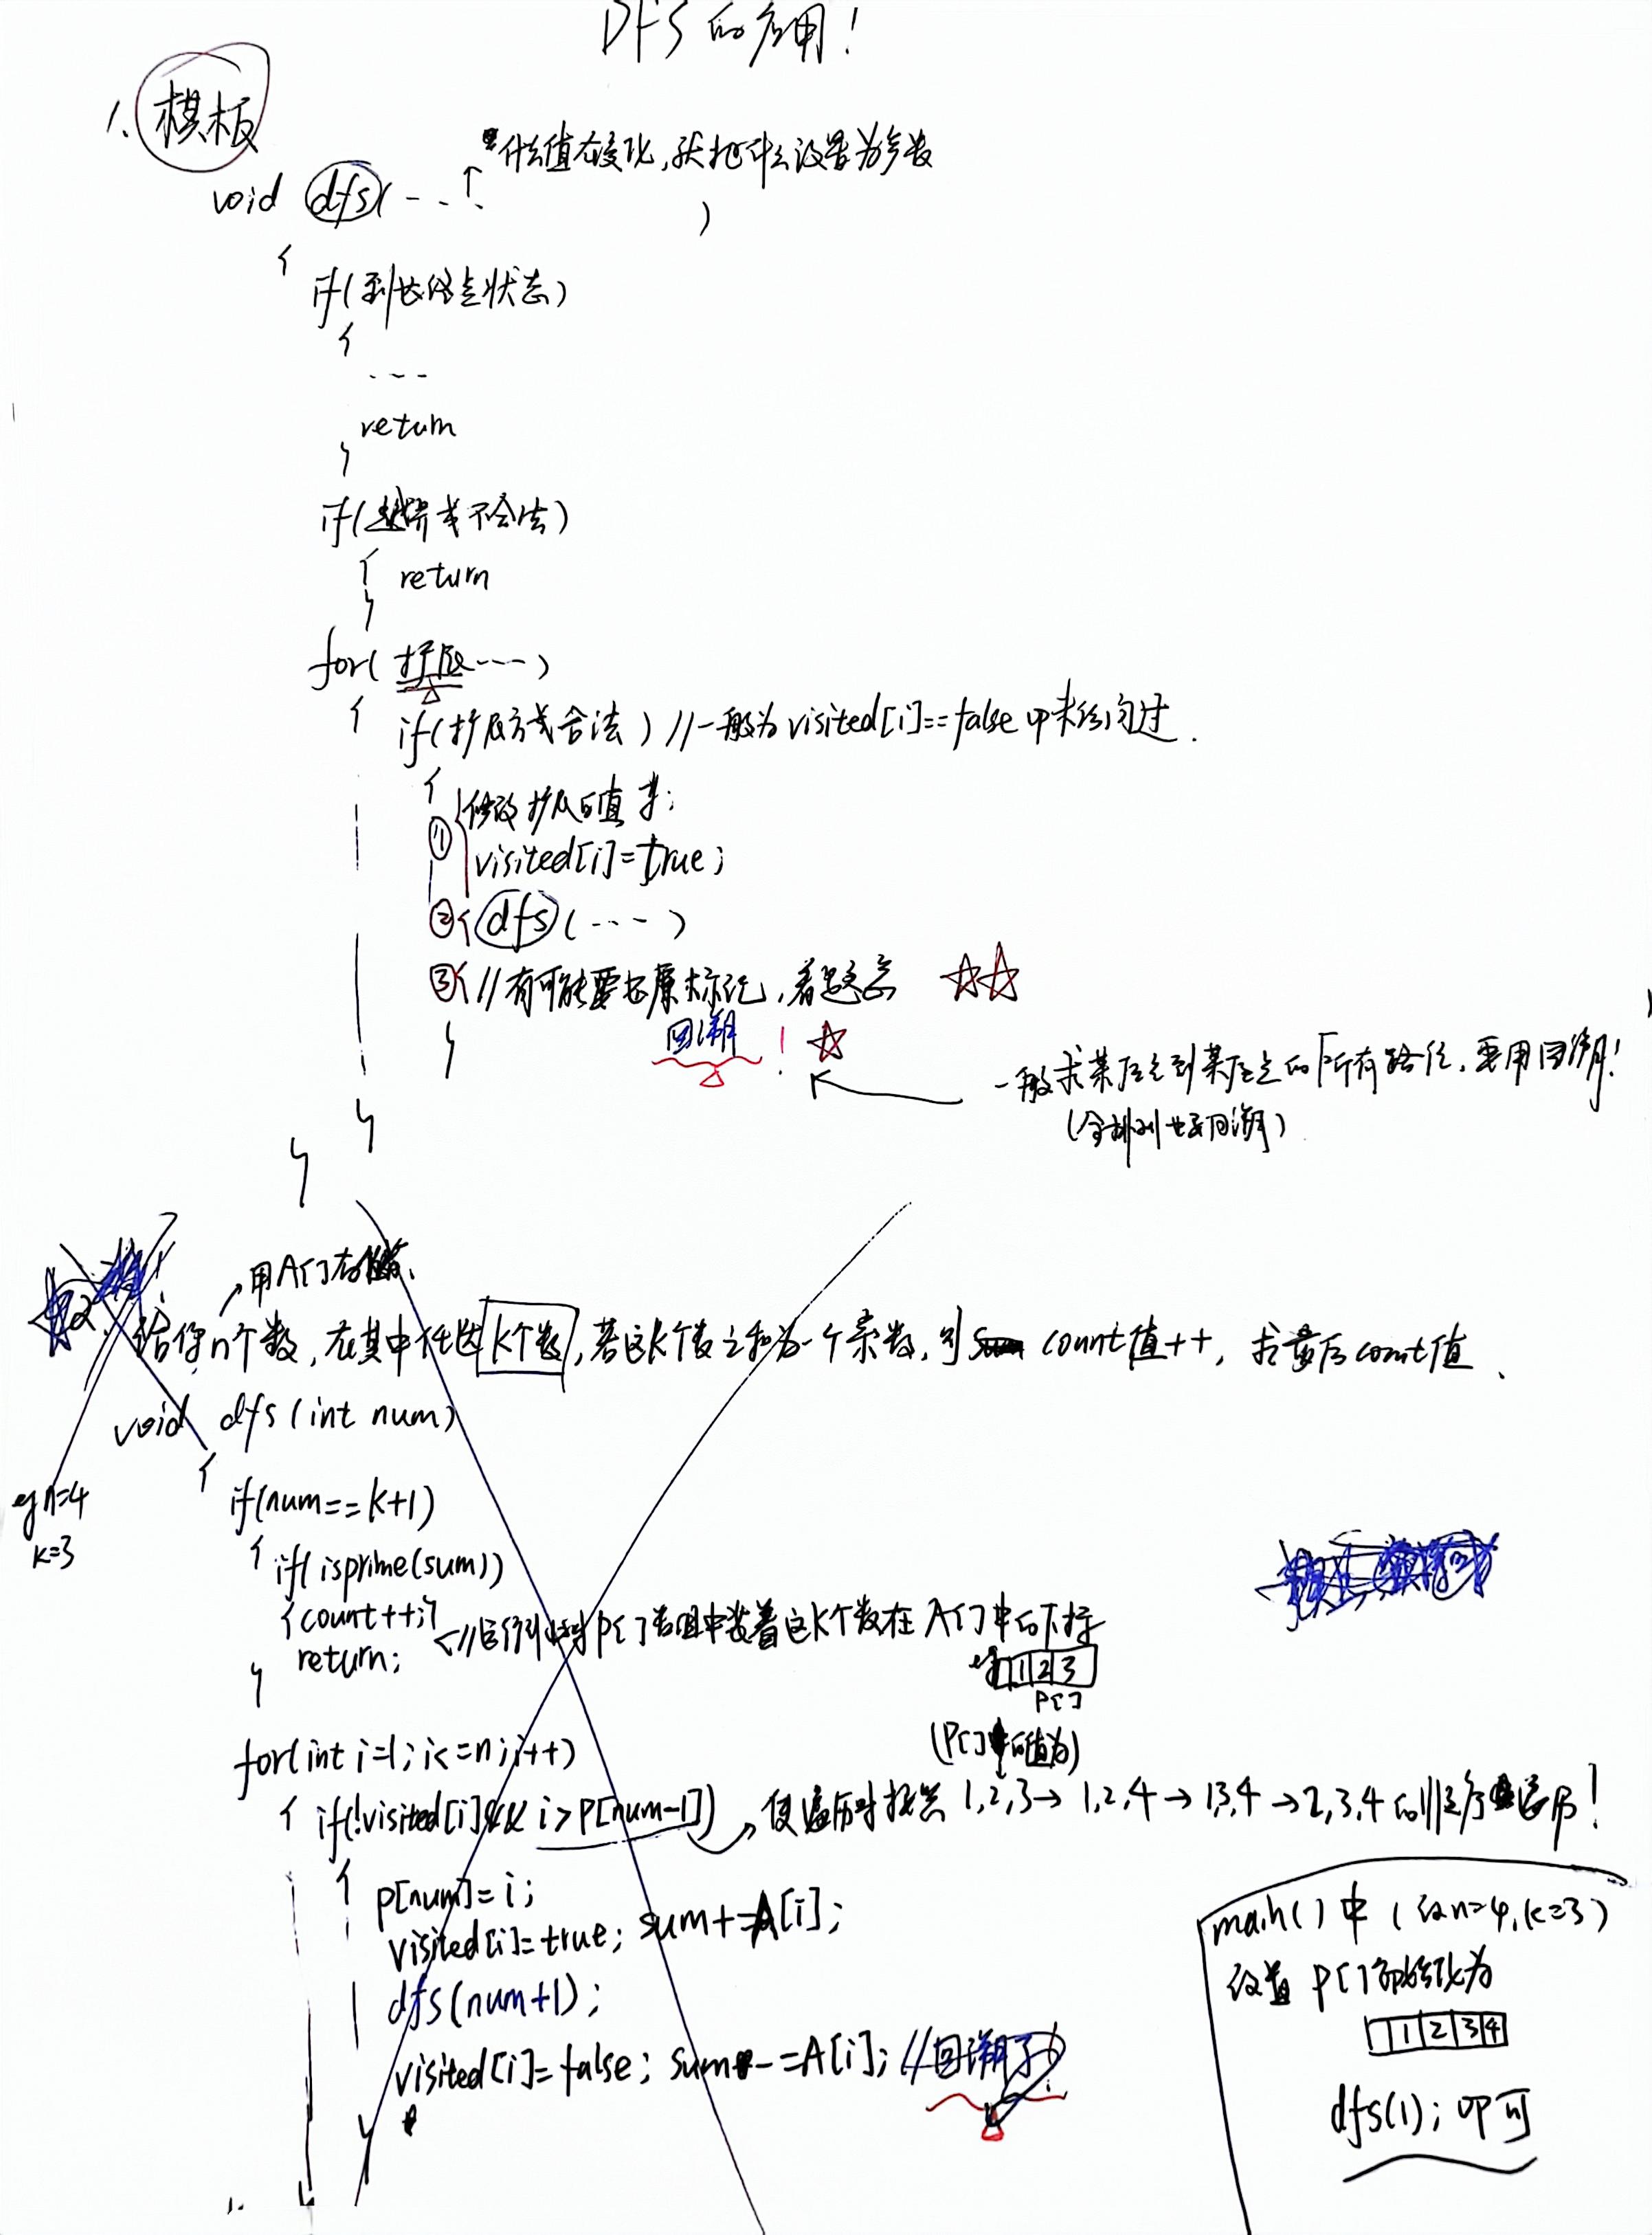 DFS的应用!
1. 模板
什么值在变化,就把什么设置为参数
void dfs(....
)
{
if(到达终点状态)
{
...
return
}
if(越界或不合法)
{ return
}
for(扩展....)
{
if(扩展方式合法) //一般为visited[i]==false即未访问过.
{
① 修改扩展的值等;
visited[i]=true;
② dfs(....)
③ //有可能要还原标记,看题意
回溯!
}
一般求某起点到某终点的所有路径,要用回溯!
(全排列也要回溯)
}
}
用A[]存储、
2. 给你n个数,在其中任选k个数,若这k个数之和为一个素数,则 count值++, 求最后count值、
void dfs(int num)
{
eg n=4
k=3
if(num==k+1)
{ if(isprime(sum))
{ count++;}
return; //运行到此时P[]数组中装着这k个数在A[]中的下标
}
eg 1 2 3
P[]
for(int i=1;i<=n;i++)
(P[]的值为)
{ if(!visited[i]&& i>P[num-1]) 使遍历时按照 1,2,3→ 1,2,4→ 1,3,4→2,3,4的顺序遍历!
{
p[num]=i;
visited[i]=true; sum+=A[i];
dfs(num+1);
visited[i]=false; sum-=A[i]; //回溯了!
}
main()中 (设n=4,k=3)
设置 P[]初始化为
1 2 3 4
dfs(1); 即可